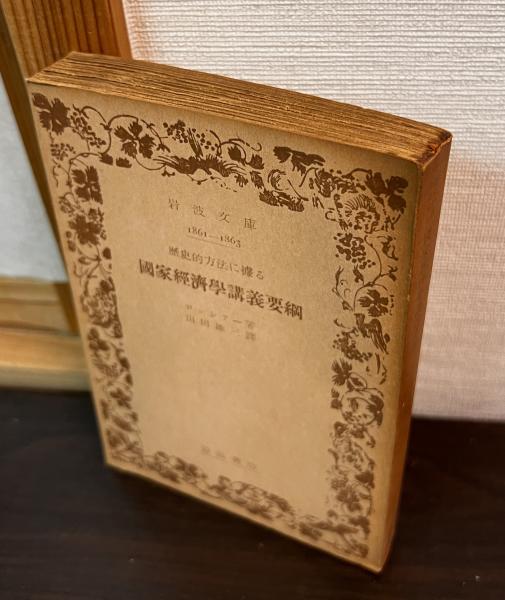 岩波文庫
1861—1863
歴史的方法に據る
國家經濟學講義要綱
ロッシアー著
山田雄三譯
岩波書店